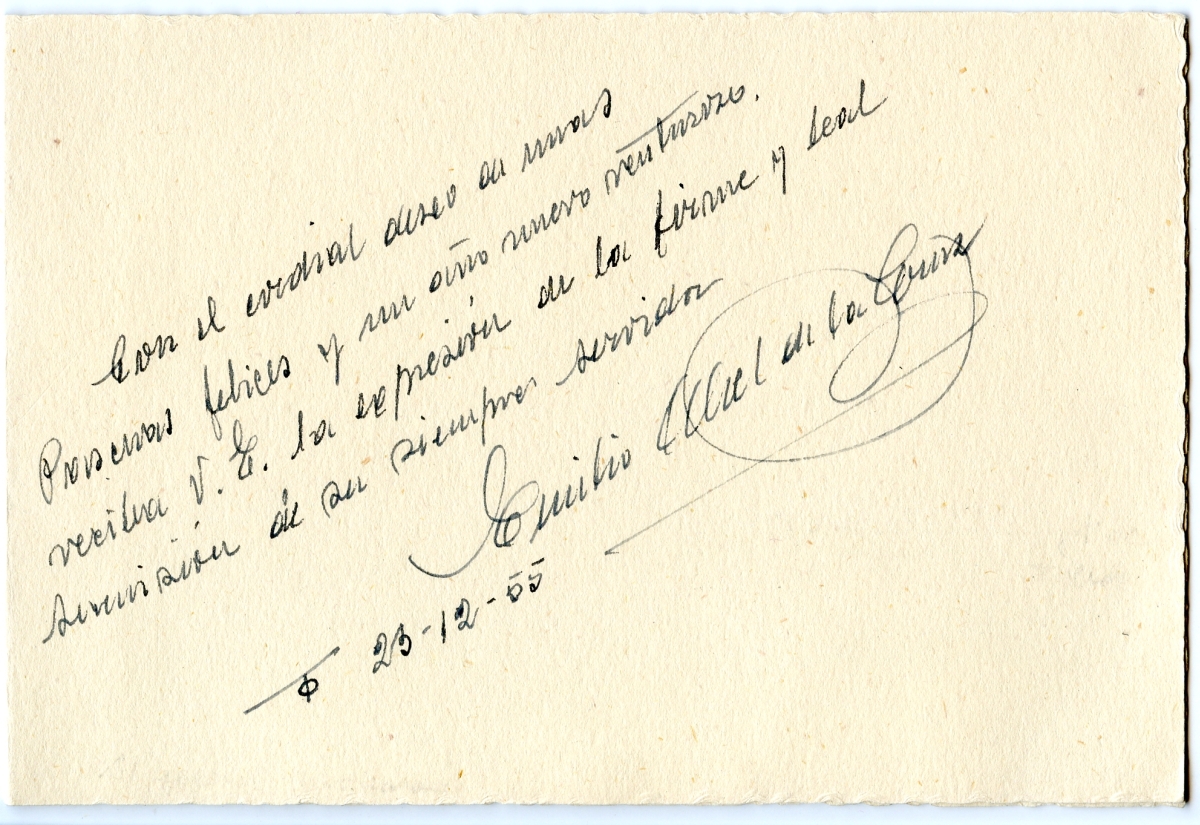 Con el cordial deseo de unas
Pascuas felices y un año nuevo venturoso.
reciba V. E. la expresión de la firme y leal
sumisión de su siempre servidor
Emilio Abel de la Cruz
23-12-55